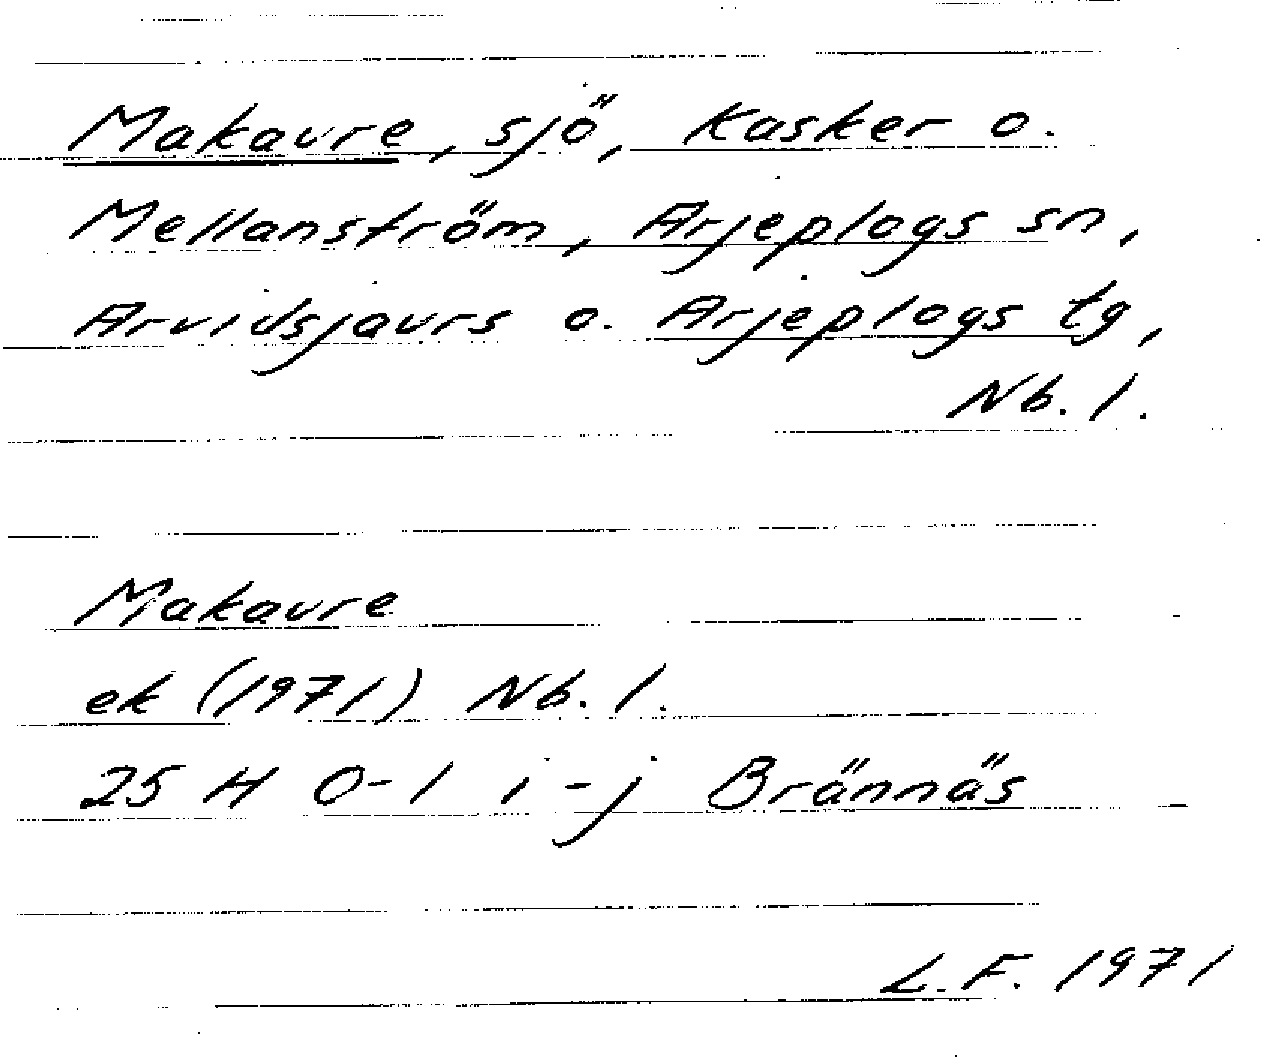 Makaure, sjö, Kasker o.
Mellanström, Arjeplogs sn,
Arvidsjaurs o. Arjeplogs tg,
Nb. l.
Makaure
ek (1971) Nb. l.
25 H 0-1 i-j Brännäs
L.F. 1971